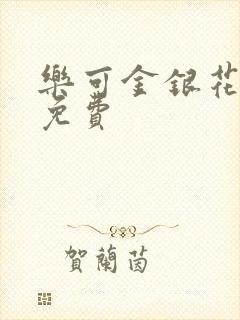 樂可金銀花
免費
賀蘭茵